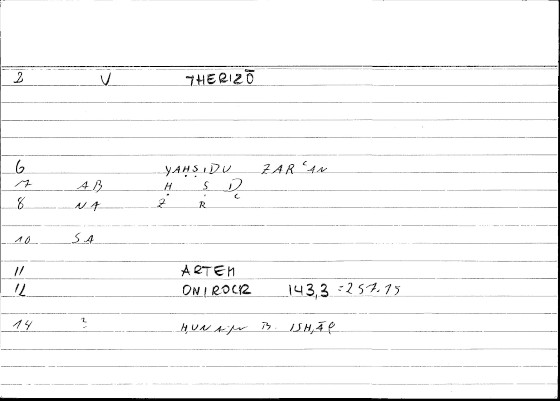 2 V THERIZŌ
6 YAḤṢIDU ZARʿAN
7 AB Ḥ Ṣ D
8 NA Z R ʿ
10 SA
11 ARTEM
12 ONIROCR 143,3 = 257.15
14 ? ḤUNAYN B. ISḤĀQ